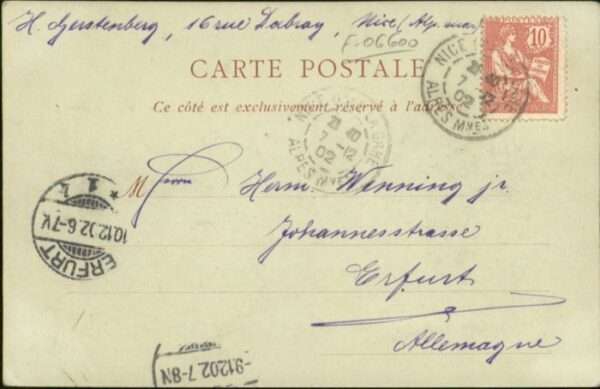 H. Gerstenberg, 16 rue Dabray, Nice (Alp. mar.)
F-06600
10
CARTE POSTALE
Ce côté est exclusivement réservé à l'adresse
NICE
7 12
02
ALPES MMES
7 12
02
ALPES MMES
M Herrn Herm. Wenning jr.
Johannesstrasse
Erfurt
Allemagne
* 1
10.12.02.6-7V.
ERFURT
-9.12.02.7-8N